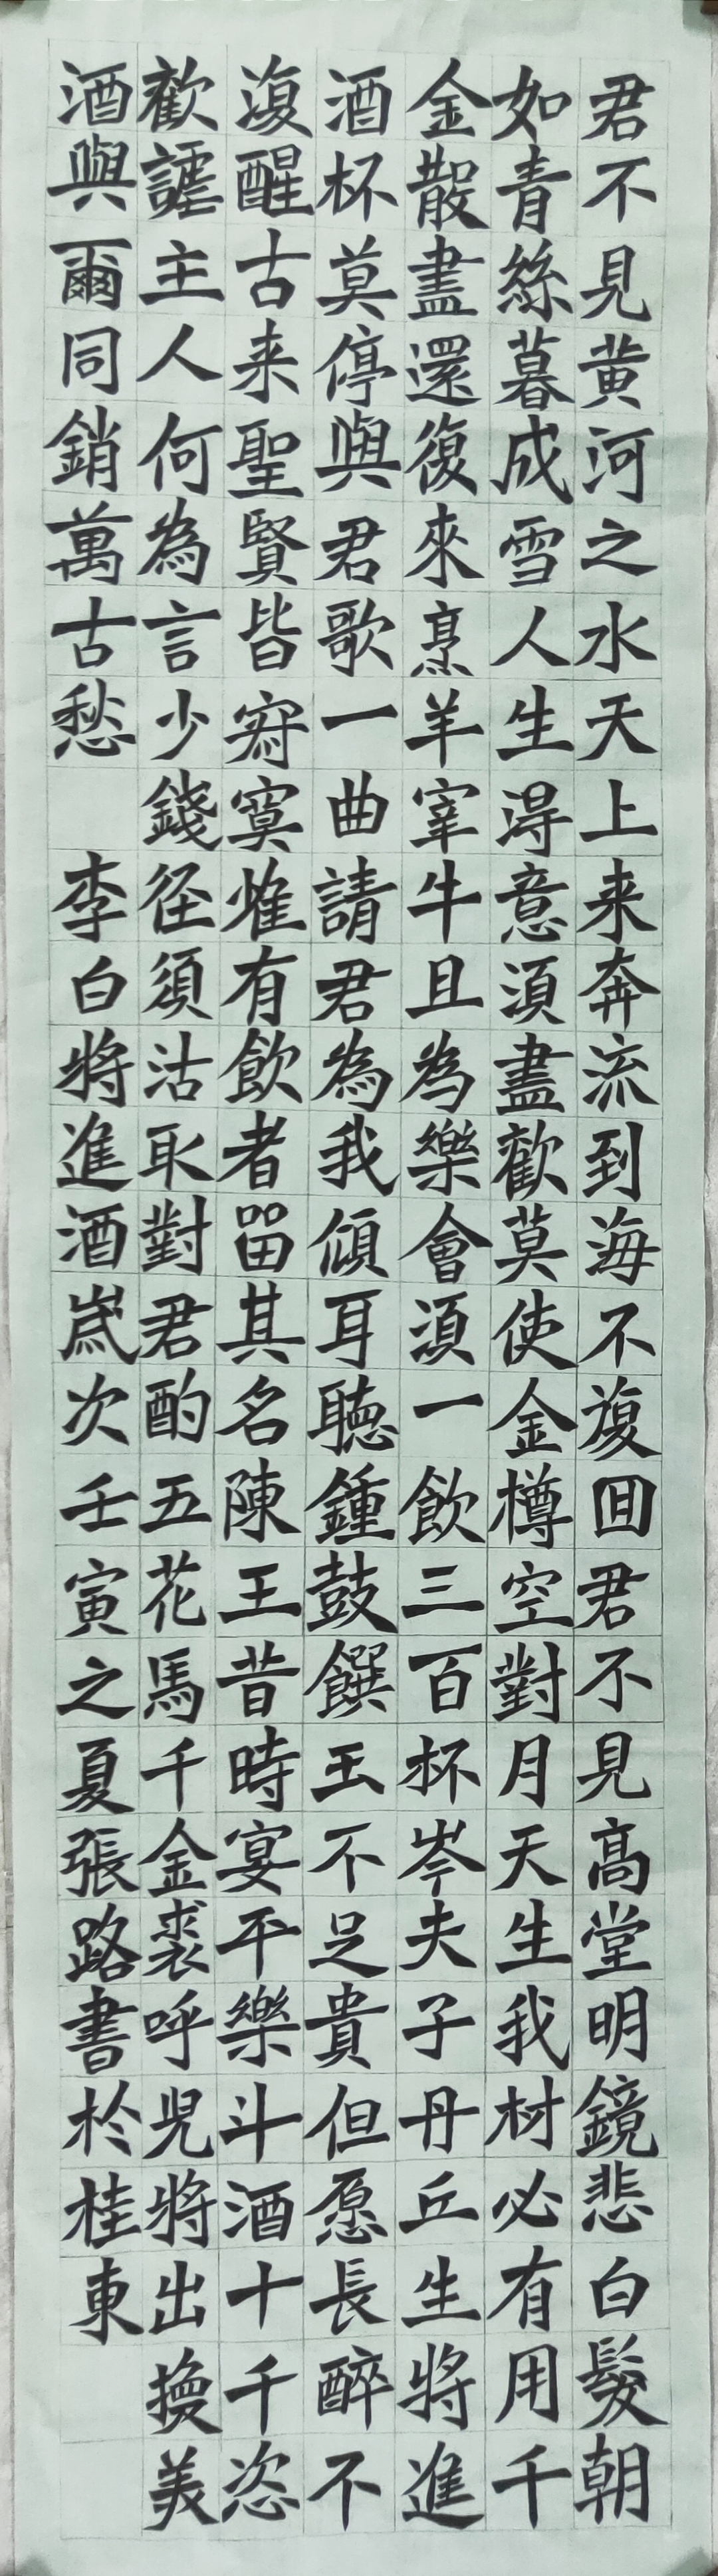 君不見黄河之水天上来奔流到海不復回君不見高堂明鏡悲白髮朝
如青絲暮成雪人生得意須盡歡莫使金樽空對月天生我材必有用千
金散盡還復來烹羊宰牛且為樂會須一飲三百杯岑夫子丹丘生將進
酒杯莫停與君歌一曲請君為我傾耳聽鍾鼓饌玉不足貴但愿長醉不
復醒古来聖賢皆寂寞惟有飲者留其名陳王昔時宴平樂斗酒十千恣
歡謔主人何為言少錢径須沽取對君酌五花馬千金裘呼児將出換美
酒與爾同銷萬古愁 李白將進酒歲次壬寅之夏張路書於桂東